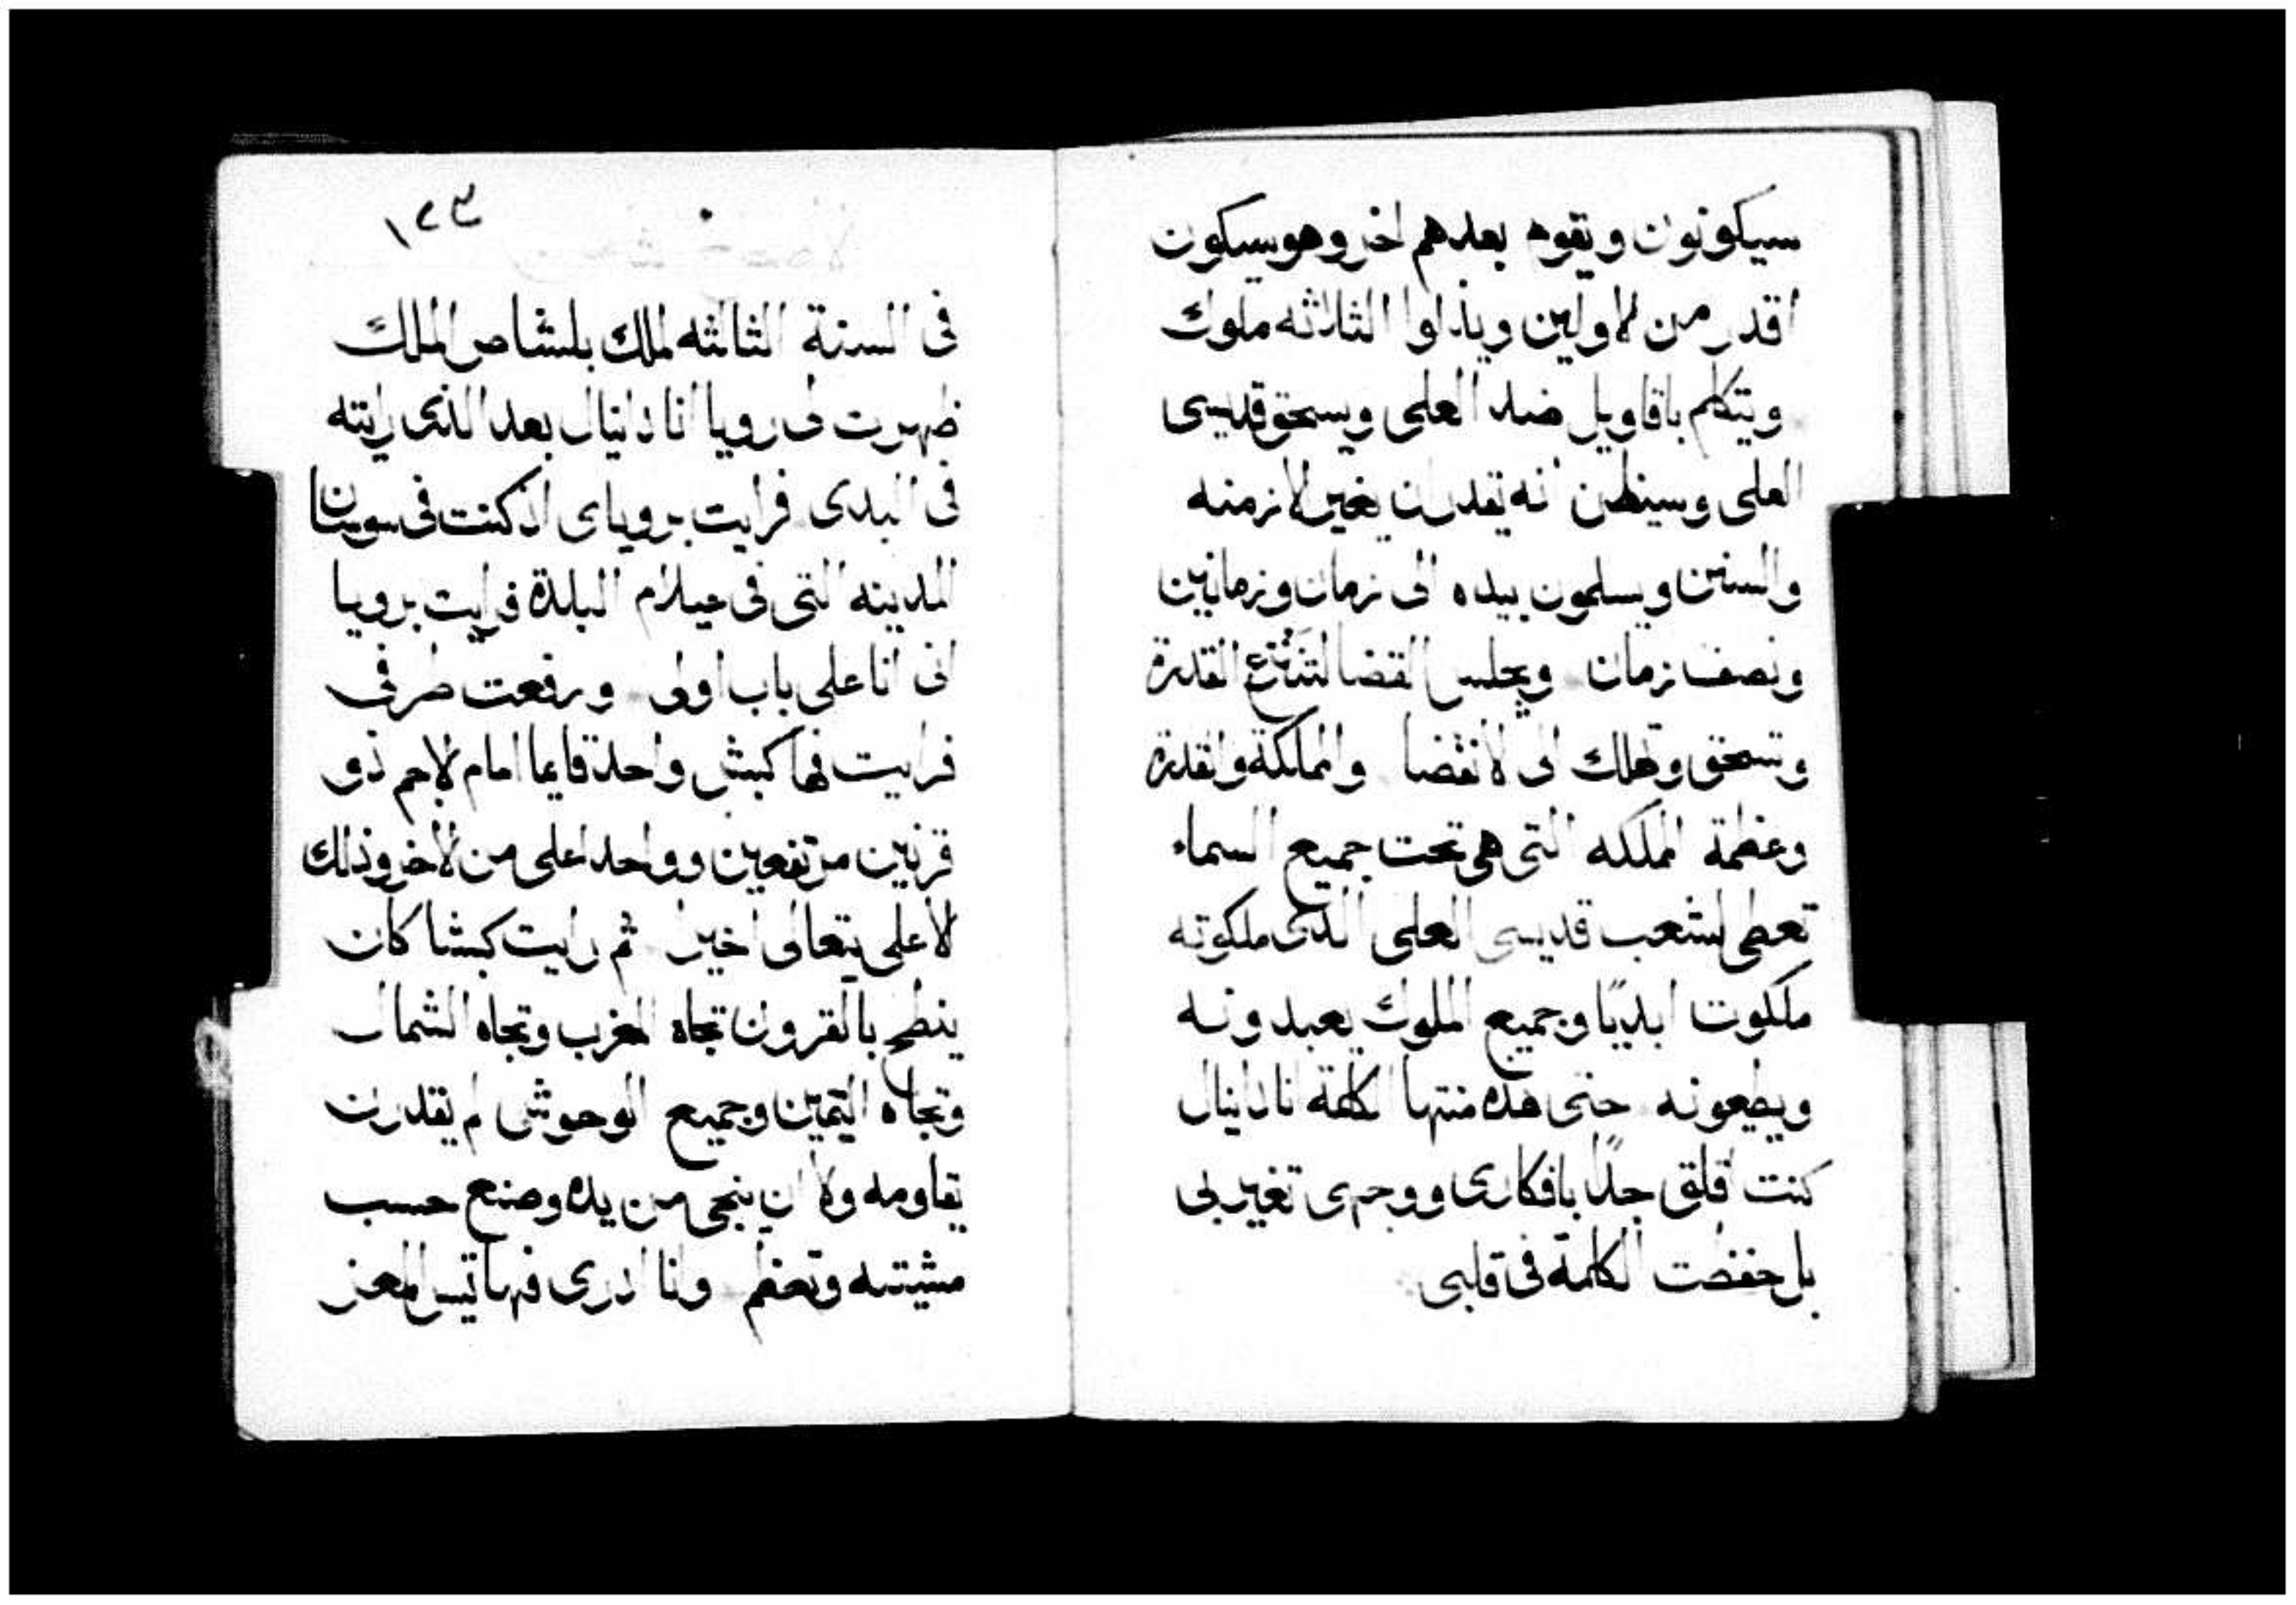 سيكونون ويقوم بعدهم اخر وهو سيكون
اقدر من الاولين ويذلوا الثلاثه ملوك
ويتكلم باقاويل ضد العلى ويسحق قديسى
العلى وسيظن انه يقدر ان يغير الازمنه
والسنين ويسلمون بيده الى زمان وزمانين
ونصف زمان ويجلس القضا لتنتزع القدرة
وتسحق وتهلك الى الانقضا والمملكة والقدرة
وعظمة المملكه التى هى تحت جميع السماء
تعطى لشعب قديسى العلى الذى ملكوته
ملكوت ابديًا وجميع الملوك يعبدونه
ويطيعونه حتى هذه منتها الكلمة انا دانيال
كنت اقلق جدًا بافكارى ووجهى تغير بى
بل حفظت الكلمة فى قلبى
١٢٣
فى السنة الثالثه لملك بلشاصر الملك
ظهرت لى رويا انا دانيال بعد الذى رايته
فى البدى فرايت برويااى اذ كنت فى سوسان
المدينه التى فى عيلام البلدة فرايت برويا
انى انا على باب اولى ورفعت طرفى
فرايت فها كبش واحد قايما امام الاجم ذو
قرنين مرتفعين وواحد اعلى من الاخر وذلك
الاعلى يتعالى اخيرا ثم رايت كبشا كان
ينطح بالقرون تجاه المغرب وتجاه الشمال
وتجاه التيمين وجميع الوحوش لم يقدر ان
يقاومه ولا ان ينجى من يده وصنع حسب
مشيتته وتعظم وانا ادرى فها تيس المعز